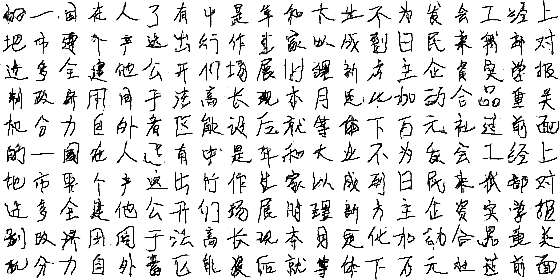 的一国在人了有中是年和大业不为发会工经上
地市要个产这出行作生家以成到日民来我部对
进多全建他公开们场展时理新方主企资实学报
制政济用同于法高长现本月定化加动合品重关
机分力自外者区能设后就等体下百元社过前面
的一国在人了有中是年和大业不为发会工经上
地市要个产这出行作生家以成到日民来我部对
进多全建他公开们场展时理新方主企资实学报
制政济用同于法高长现本月定化加动合品重关
机分力自外者区能设后就等体下万元社过前面